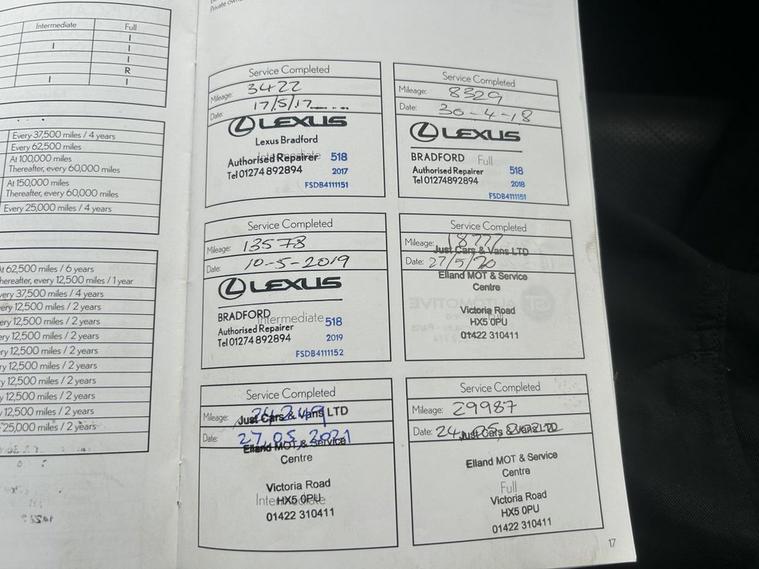 Private own
Intermediate Full
I
I I
I
R
I I
Every 37,500 miles / 4 years
Every 62,500 miles
At 100,000 miles
Thereafter, every 60,000 miles
At 150,000 miles
Thereafter, every 60,000 miles
Every 25,000 miles / 4 years
At 62,500 miles / 6 years
hereafter, every 12,500 miles / 1 year
very 37,500 miles / 4 years
ery 12,500 miles / 2 years
ery 12,500 miles / 2 years
ry 12,500 miles / 2 years
ry 12,500 miles / 2 years
y 12,500 miles / 2 years
y 12,500 miles / 2 years
12,500 miles / 2 years
25,000 miles / 2 years
Service Completed
Mileage: 3422
Date: 17/5/17
LEXUS
Lexus Bradford
Intermediate
Authorised Repairer 518
Tel 01274 892894 2017
FSDB4111151
Service Completed
Mileage: 8329
Date: 30-4-18
LEXUS
BRADFORD Full
Authorised Repairer 518
Tel 01274892894 2018
FSDB4111151
Service Completed
Mileage: 13578
Date: 10-5-2019
LEXUS
BRADFORD
Intermediate
Authorised Repairer 518
Tel 01274 892894 2019
FSDB4111152
Service Completed
Mileage: 18777
Just Cars & Vans LTD
Date: 27/5/20
Elland MOT & Service
Centre
Victoria Road
HX5 0PU
01422 310411
Service Completed
Mileage:
Just Cars & Vans LTD
Date: 27.05.2021
Elland MOT & Service
Centre
Victoria Road
Intermediate
HX5 0PU
01422 310411
Service Completed
Mileage: 29987
Date: 24
Just Cars & Vans LTD
Elland MOT & Service
Centre
Full
Victoria Road
HX5 0PU
01422 310411
17